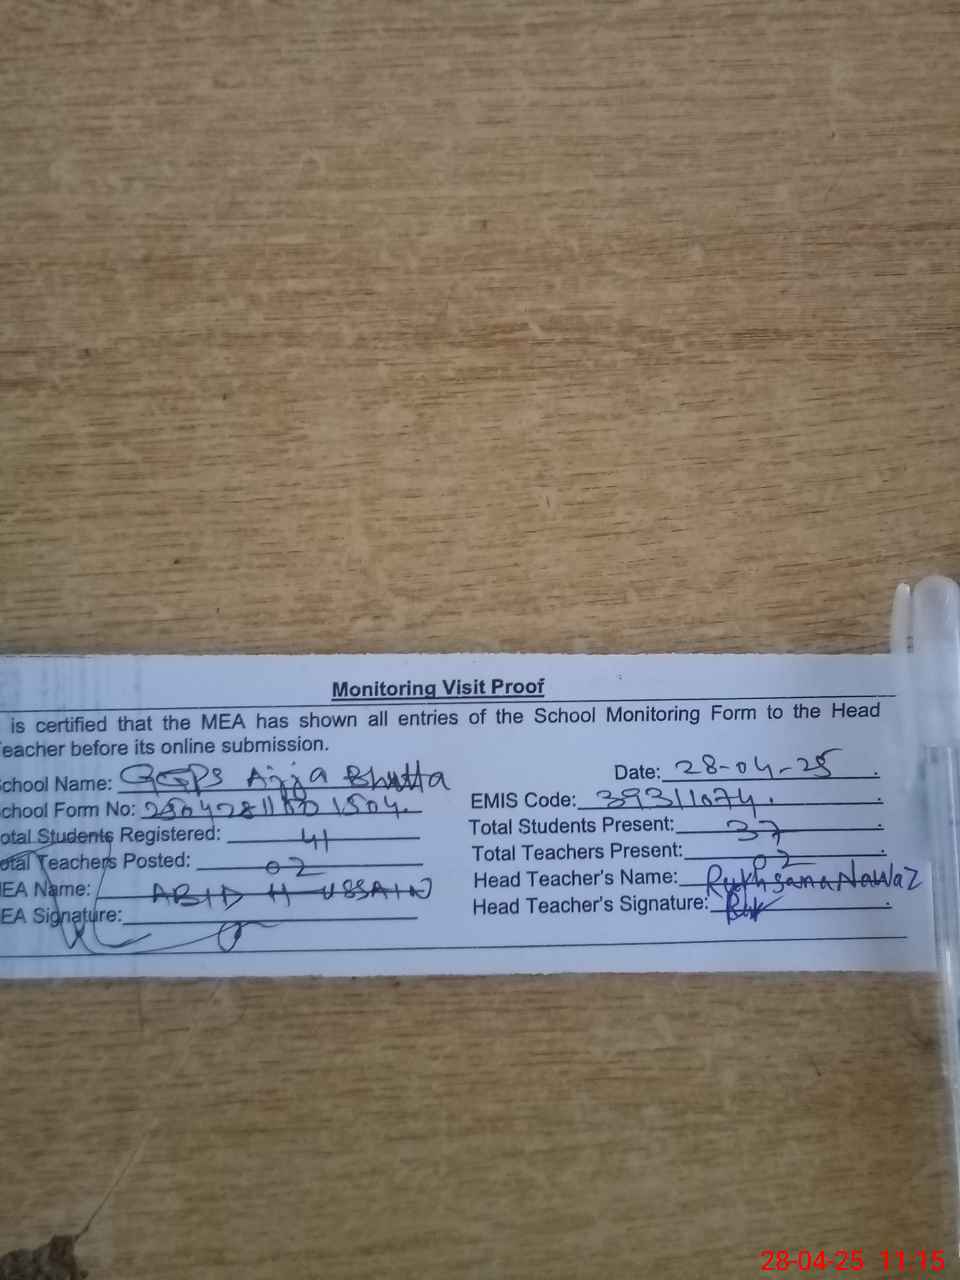 Monitoring Visit Proof
is certified that the MEA has shown all entries of the School Monitoring Form to the Head
eacher before its online submission.
chool Name: GGPS Ajja Bhutta Date: 28-04-25
chool Form No: EMIS Code: 39311074
otal Students Registered: 41 Total Students Present: 37
otal Teachers Posted: 02 Total Teachers Present: 02
EA Name: ABID HUSSAIN Head Teacher's Name: Rukhsana Nawaz
EA Signature: Head Teacher's Signature:
28-04-25 11:15